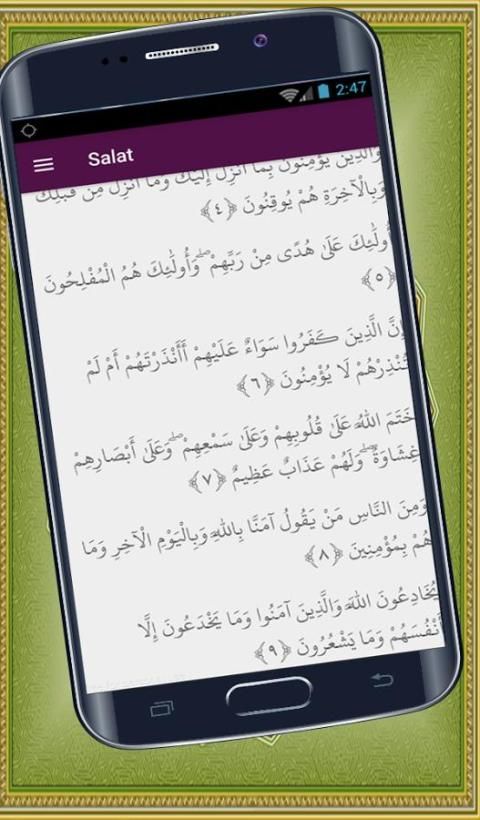 2:47
Salat
وَالَّذِينَ يُؤْمِنُونَ بِمَا أُنْزِلَ إِلَيْكَ وَمَا أُنْزِلَ مِنْ قَبْلِكَ
وَبِالْآخِرَةِ هُمْ يُوقِنُونَ ﴿٤﴾
أُولَٰئِكَ عَلَىٰ هُدًى مِنْ رَبِّهِمْ ۖ وَأُولَٰئِكَ هُمُ الْمُفْلِحُونَ
﴿٥﴾
إِنَّ الَّذِينَ كَفَرُوا سَوَاءٌ عَلَيْهِمْ أَأَنْذَرْتَهُمْ أَمْ لَمْ
تُنْذِرْهُمْ لَا يُؤْمِنُونَ ﴿٦﴾
خَتَمَ اللَّهُ عَلَىٰ قُلُوبِهِمْ وَعَلَىٰ سَمْعِهِمْ ۖ وَعَلَىٰ أَبْصَارِهِمْ
غِشَاوَةٌ ۖ وَلَهُمْ عَذَابٌ عَظِيمٌ ﴿٧﴾
وَمِنَ النَّاسِ مَنْ يَقُولُ آمَنَّا بِاللَّهِ وَبِالْيَوْمِ الْآخِرِ وَمَا
هُمْ بِمُؤْمِنِينَ ﴿٨﴾
يُخَادِعُونَ اللَّهَ وَالَّذِينَ آمَنُوا وَمَا يَخْدَعُونَ إِلَّا
أَنْفُسَهُمْ وَمَا يَشْعُرُونَ ﴿٩﴾